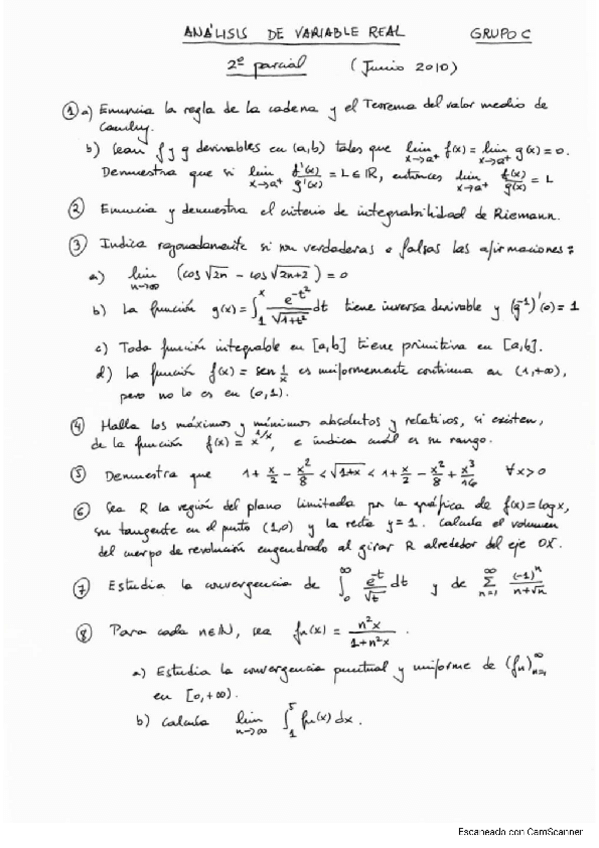 ANÁLISIS DE VARIABLE REAL GRUPO C
2º parcial (Junio 2010)
① a) Enuncia la regla de la cadena y el Teorema del valor medio de
Cauchy.
b) Sean f y g derivables en (a,b) tales que lim x→a⁺ f(x) = lim x→a⁺ g(x) = 0.
Demuestra que si lim x→a⁺ f'(x)/g'(x) = L ∈ ℝ, entonces lim x→a⁺ f(x)/g(x) = L
② Enuncia y demuestra el criterio de integrabilidad de Riemann.
③ Indica razonadamente si son verdaderas o falsas las afirmaciones:
a) lim n→∞ (cos √2n - cos √2n+2) = 0
b) La función g(x) = ∫₁ˣ e^(-t²)/√(1+t²) dt tiene inversa derivable y (g⁻¹)'(0) = 1
c) Toda función integrable en [a,b] tiene primitiva en [a,b].
d) La función f(x) = sen 1/x es uniformemente continua en (1,+∞),
pero no lo es en (0,1).
④ Halla los máximos y mínimos absolutos y relativos, si existen,
de la función f(x) = x^(1/x), e indica cuál es su rango.
⑤ Demuestra que 1 + x/2 - x²/8 < √1+x < 1 + x/2 - x²/8 + x³/16 ∀x>0
⑥ Sea R la región del plano limitada por la gráfica de f(x) = log x,
su tangente en el punto (1,0) y la recta y = 1. Calcula el volumen
del cuerpo de revolución engendrado al girar R alrededor del eje OX.
⑦ Estudia la convergencia de ∫₀^∞ e^(-t)/√t dt y de Σ n=1 ∞ (-1)ⁿ/(n+√n)
⑧ Para cada n∈ℕ, sea fn(x) = n²x/(1+n²x).
a) Estudia la convergencia puntual y uniforme de (fn)∞n=1
en [0,+∞).
b) Calcula lim n→∞ ∫₁⁵ fn(x) dx.
Escaneado con CamScanner